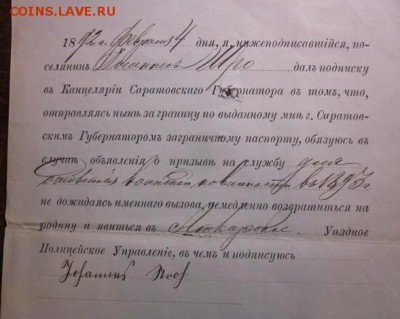 COINS.LAVE.RU
1892 г. Февраля 4 дня, я, нижеподписавшійся, по-
селянинъ далъ подписку
въ Канцеляріи Саратовскаго Губернатора въ томъ, что,
отправляясь нынѣ за границу по выданному мнѣ г. Саратов-
скимъ Губернаторомъ заграничному паспорту, обязуюсь въ
случаѣ объявленія о призывѣ на службу для
повинности въ 1893 г.
не дожидаясь именнаго вызова, немедленно возвратиться на
родину и явиться въ Уѣздное
Полицейское Управленіе, въ чемъ и подписуюсь
Johannes